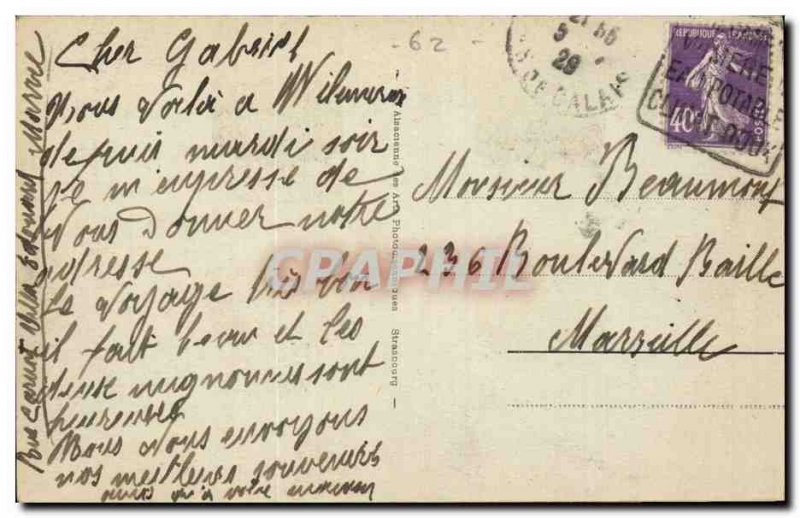 Cher Gabriel
Nous voilà a Wimereux
depuis mardi soir
Je m'empresse de
Vous Donner notre
adresse
Le voyage très bon
il fait beau et les
deux mignonnes sont
heureuses
Nous vous envoyons
nos meilleurs souvenirs
ainsi qu'a votre maman
Rue Carnot Villa Edouard
- 62 -
5
29
PAS DE CALAIS
REPUBLIQUE FRANCAISE
40c
POSTES
EAU POTABLE
Monsieur Beaumont
236 Boulevard Baille
Marseille
Alsacienne des Arts Photomécaniques Strasbourg —
CPAPHIL.com